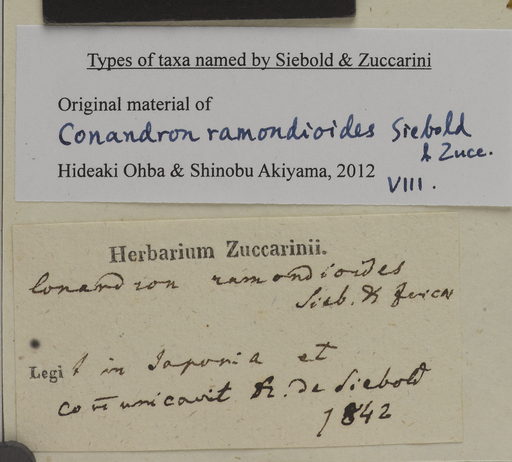 Types of taxa named by Siebold & Zuccarini
Original material of
Conandron ramondioides Siebold
& Zucc.
Hideaki Ohba & Shinobu Akiyama, 2012
VIII.
Herbarium Zuccarinii.
Conandron ramondioides
Sieb. &
Legit in Japonia et
com̄unicavit de Siebold
1842